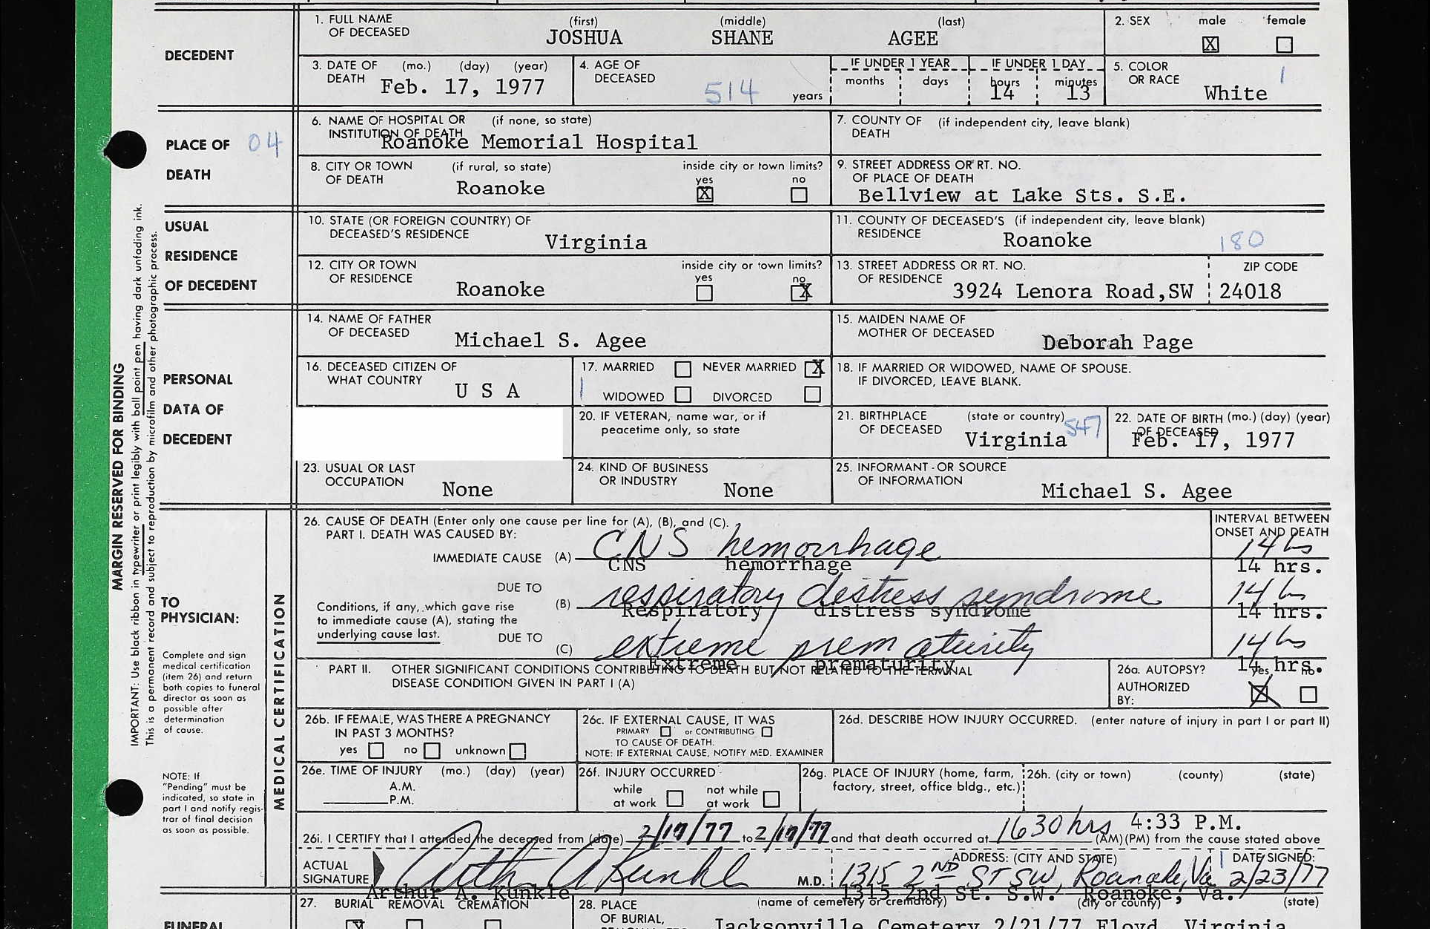 DECEDENT
1. FULL NAME OF DECEASED (first) JOSHUA (middle) SHANE (last) AGEE
2. SEX male X female
3. DATE OF DEATH (mo.) (day) (year) Feb. 17, 1977
4. AGE OF DECEASED 514 years
IF UNDER 1 YEAR months days IF UNDER 1 DAY hours 14 minutes 13
5. COLOR OR RACE White 1
PLACE OF DEATH 04
6. NAME OF HOSPITAL OR INSTITUTION OF DEATH (if none, so state) Roanoke Memorial Hospital
7. COUNTY OF DEATH (if independent city, leave blank)
8. CITY OR TOWN OF DEATH (if rural, so state) Roanoke inside city or town limits? yes X no
9. STREET ADDRESS OR RT. NO. OF PLACE OF DEATH Bellview at Lake Sts. S.E.
USUAL RESIDENCE OF DECEDENT
10. STATE (OR FOREIGN COUNTRY) OF DECEASED'S RESIDENCE Virginia
11. COUNTY OF DECEASED'S RESIDENCE (if independent city, leave blank) Roanoke 180
12. CITY OR TOWN OF RESIDENCE Roanoke inside city or town limits? yes no X
13. STREET ADDRESS OR RT. NO. OF RESIDENCE 3924 Lenora Road,SW ZIP CODE 24018
PERSONAL DATA OF DECEDENT
14. NAME OF FATHER OF DECEASED Michael S. Agee
15. MAIDEN NAME OF MOTHER OF DECEASED Deborah Page
16. DECEASED CITIZEN OF WHAT COUNTRY U S A
17. MARRIED NEVER MARRIED X WIDOWED DIVORCED
18. IF MARRIED OR WIDOWED, NAME OF SPOUSE. IF DIVORCED, LEAVE BLANK.
20. IF VETERAN, name war, or if peacetime only, so state
21. BIRTHPLACE OF DECEASED (state or country) Virginia 547
22. DATE OF BIRTH (mo.) (day) (year) OF DECEASED Feb. 17, 1977
23. USUAL OR LAST OCCUPATION None
24. KIND OF BUSINESS OR INDUSTRY None
25. INFORMANT - OR SOURCE OF INFORMATION Michael S. Agee
MARGIN RESERVED FOR BINDING
IMPORTANT: Use black ribbon in typewriter or print legibly with ball point pen having dark unfading ink.
This is a permanent record and subject to reproduction by microfilm and other photographic process.
TO PHYSICIAN:
Complete and sign medical certification (item 26) and return both copies to funeral director as soon as possible after determination of cause.
NOTE: If "Pending" must be indicated, so state in part I and notify registrar of final decision as soon as possible.
MEDICAL CERTIFICATION
26. CAUSE OF DEATH (Enter only one cause per line for (A), (B), and (C).
PART I. DEATH WAS CAUSED BY:
INTERVAL BETWEEN ONSET AND DEATH
IMMEDIATE CAUSE (A) CNS hemorrhage 14 hs
CNS hemorrhage 14 hrs.
DUE TO (B) respiratory distress syndrome 14 hs
Respiratory distress syndrome 14 hrs.
Conditions, if any, which gave rise to immediate cause (A), stating the underlying cause last.
DUE TO (C) extreme prematurity 14 hs
Extreme prematurity 14 hrs.
PART II. OTHER SIGNIFICANT CONDITIONS CONTRIBUTING TO DEATH BUT NOT RELATED TO THE TERMINAL DISEASE CONDITION GIVEN IN PART I (A)
26a. AUTOPSY? yes X no
AUTHORIZED BY:
26b. IF FEMALE, WAS THERE A PREGNANCY IN PAST 3 MONTHS? yes no unknown
26c. IF EXTERNAL CAUSE, IT WAS PRIMARY or CONTRIBUTING TO CAUSE OF DEATH.
NOTE: IF EXTERNAL CAUSE, NOTIFY MED. EXAMINER
26d. DESCRIBE HOW INJURY OCCURRED. (enter nature of injury in part I or part II)
26e. TIME OF INJURY (mo.) (day) (year) A.M. P.M.
26f. INJURY OCCURRED while at work not while at work
26g. PLACE OF INJURY (home, farm, factory, street, office bldg., etc.)
26h. (city or town) (county) (state)
26i. I CERTIFY that I attended the deceased from (date) 2/17/77 to 2/17/77 and that death occurred at 1630 hrs 4:33 P.M. (AM) (PM) from the cause stated above
ACTUAL SIGNATURE Arthur A Kunkle M.D. ADDRESS: (CITY AND STATE) 1315 2ND ST SW, Roanoke, Va DATE SIGNED: 2/23/77
Arthur A. Kunkle 1315 2nd St. S.W. Roanoke, Va.
FUNERAL
27. BURIAL REMOVAL CREMATION
28. PLACE OF BURIAL, (name of cemetery or crematory) (city or county) (state)
Jacksonville Cemetery 2/21/77 Floyd, Virginia